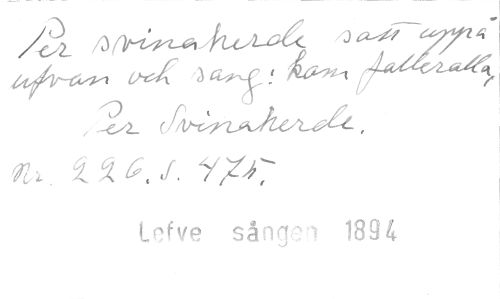 Per svinaherde satt uppå
ufvan och sang: kom falleralla,
Per Svinaherde.
Nr. 226. s. 475.
Lefve sången 1894